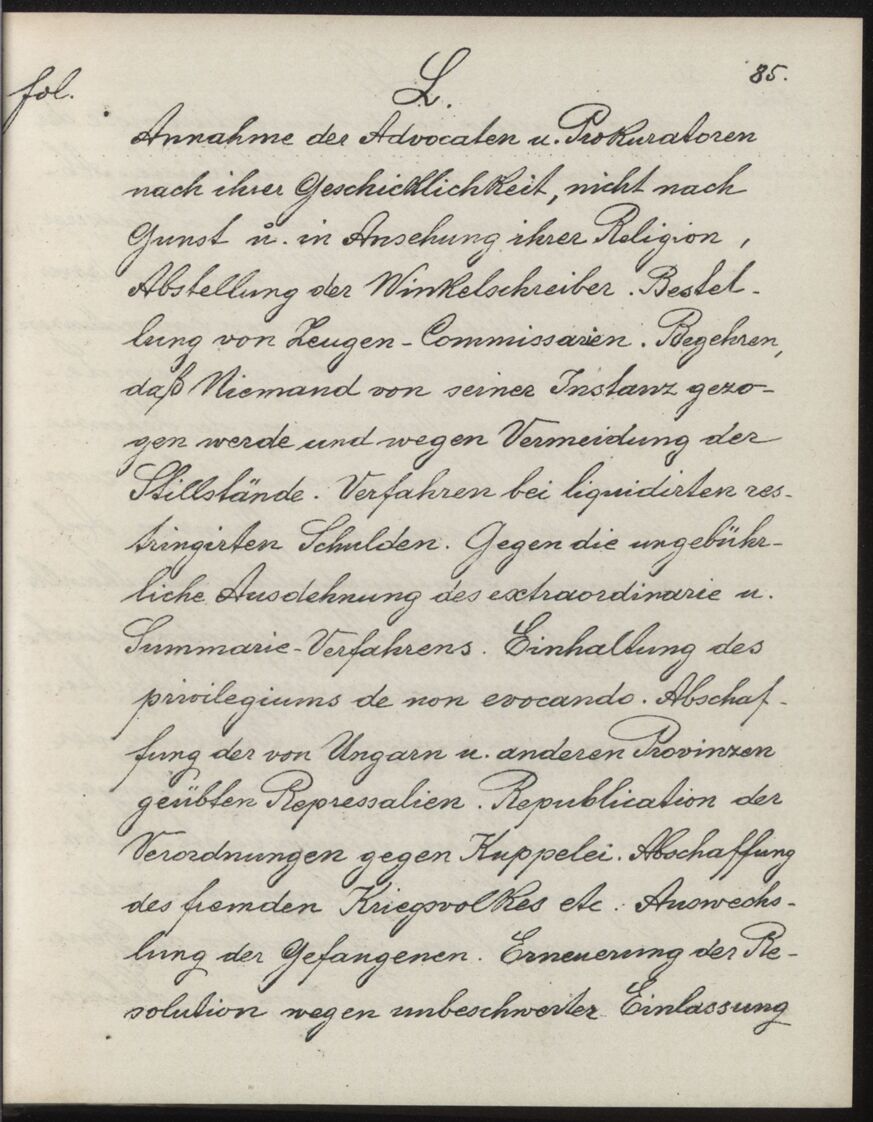 85.
fol.
L.
Annahme der Advocaten u. Prokuratoren
nach ihrer Geschicklichkeit, nicht nach
Gunst u. in Ansehung ihrer Religion,
Abstellung der Winkelschreiber. Bestel-
lung von Zeugen-Commissarien. Begehren,
daß Niemand von seiner Instanz gezo-
gen werde und wegen Vermeidung der
Stillstände. Verfahren bei liquidirten res-
tringirten Schulden. Gegen die ungebühr-
liche Ausdehnung des extraordinarie u.
Summarie-Verfahrens. Einhaltung des
privilegiums de non evocando. Abschaf-
fung der von Ungarn u. anderen Provinzen
geübten Repressalien. Republication der
Verordnungen gegen Kuppelei. Abschaffung
des fremden Kriegsvolkes etc. Auswechs-
lung der Gefangenen. Erneuerung der Re-
solution wegen unbeschwerter Einlassung